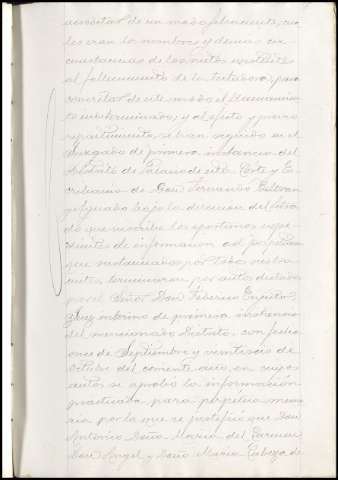 acreditar de un modo fehaciente, cua
les eran los nombres y demas cir
cunstancias de los nietos existentes
al fallecimiento de la testadora, para
concretar de este modo el llamamien
to indeterminado; y al efecto y previo
repartimiento, se han seguido en el
Juzgado de primera instancia del
Distrito de Palacio de esta Corte y Es
cribania de Don Fernando Beltran
y Aguado bajo la direccion del letra
do que suscribe los oportunos espe
dientes de informacion ad perpetuam
que sustanciados por todos sus tra
mites, terminaron por autos dictados
por el Señor Don Federico
Juez interino de primera instancia
del mencionado Distrito con fechas
once de Septiembre y veintiseis de
Octubre del corriente año, en cuyos
autos se aprobó la información
practicada para perpetua memo
ria por la que se justificó que Don
Antonio Doña Maria del Carmen
Don Angel y Doña Maria Cabeza de